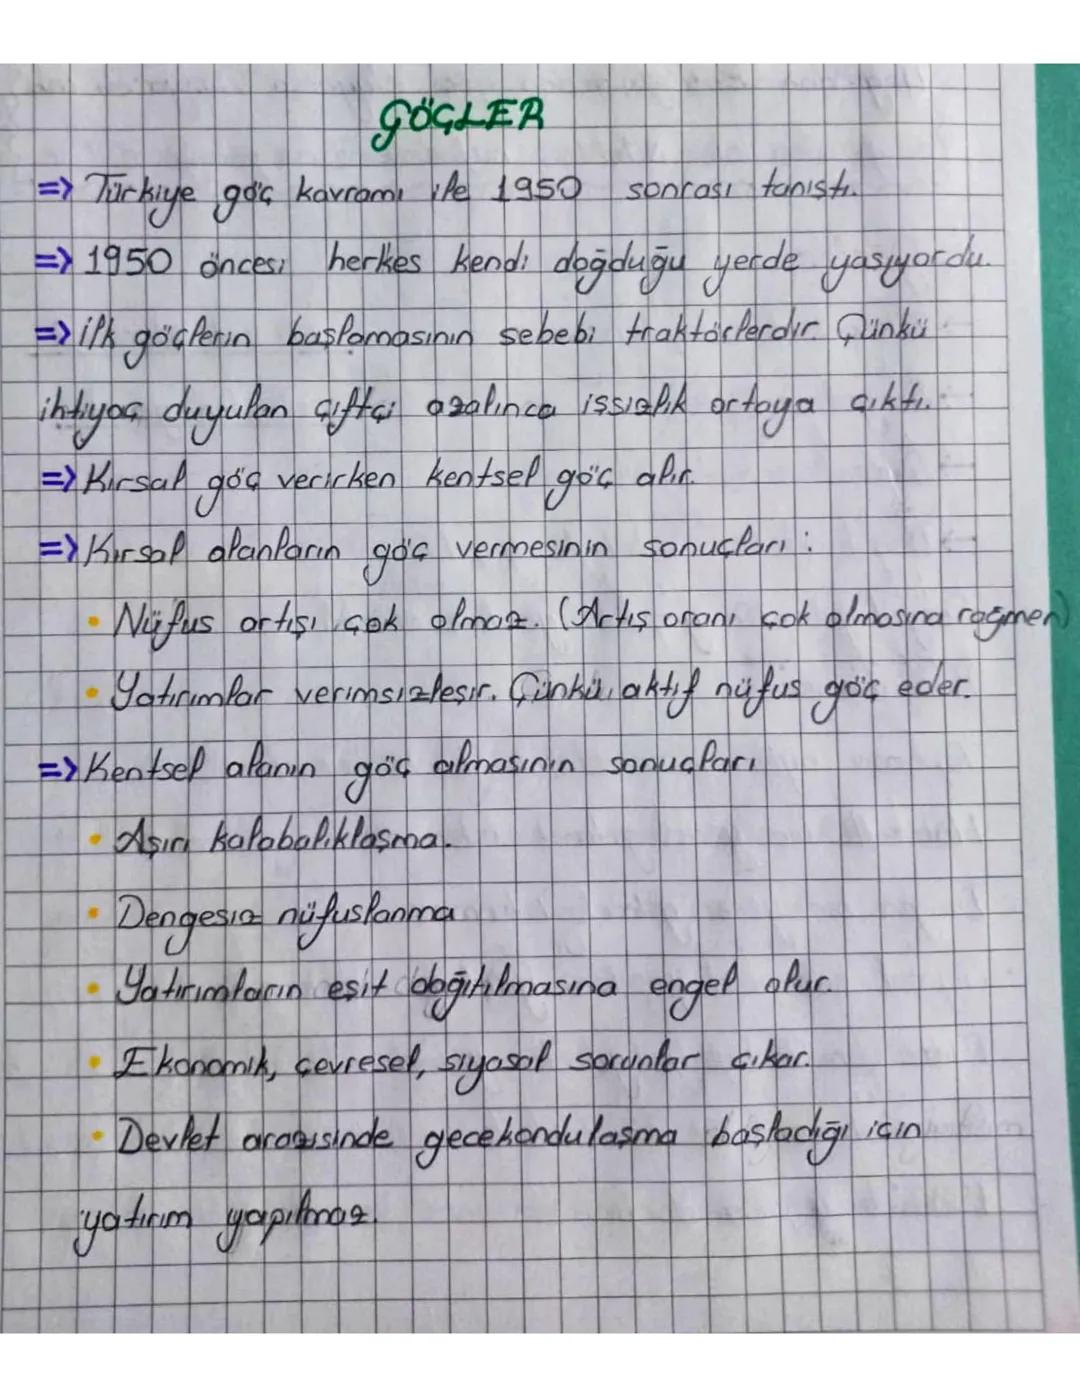 GÖÇLER
=> Türkiye göç kavramı ile 1950 sonrası tanıştı.
=> 1950 öncesi herkes kendi doğduğu yerde yaşıyordu.
=> ilk göçlerin başlamasının sebebi traktörlerdir. Çünkü
ihtiyaç duyulan çiftçi azalınca işsizlik ortaya çıktı.
=> Kırsal göç verirken kentsel göç alır.
=> Kırsal alanların göç vermesinin sonuçları :
• Nüfus artışı çok olmaz. (Artış oranı çok olmasına rağmen)
• Yatırımlar verimsizleşir. Çünkü, aktif nüfus göç eder.
=> Kentsel alanın göç almasının sonuçları
• Aşırı kalabalıklaşma.
• Dengesiz nüfuslanma
• Yatırımların eşit dağıtılmasına engel olur.
• Ekonomik, çevresel, siyasal sorunlar çıkar.
• Devlet arazisinde gecekondulaşma başladığı için
yatırım yapılmaz.